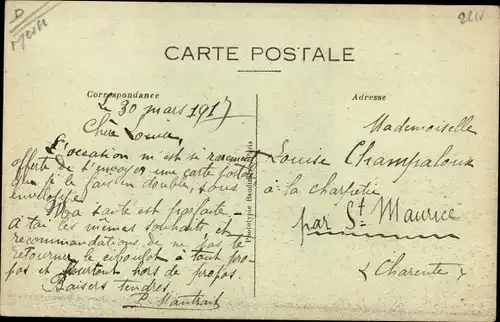 CARTE POSTALE
Correspondance
Le 30 mars 1917
Chère Louise,
L'occasion m'est si rarement
offerte de t'envoyer une carte postale
que je le fais en double, sous
enveloppe.
Ma santé est parfaite -
à toi les mêmes souhaits et
recommandations de ne pas te
retourner le ciboulot à tout pro-
pos et surtout hors de propos.
Baisers tendres
P. Mautrait
Phototypie Baudin
Adresse
Mademoiselle
Louise Champaloux
à la charpetie
par St Maurice
(Charente)